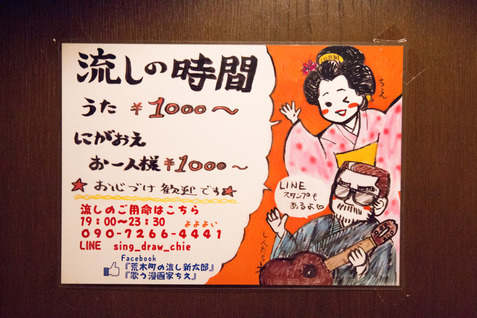 流しの時間
うた ¥1000〜
にがおえ
お一人様¥1000〜
★おひねり歓迎です★
流しのご用命はこちら
19:00〜23:30 よよよい
090-7266-4441
LINE sing_draw_chie
Facebook
『荒木町の流し新太郎』
『歌う漫画家ちえ』
ちえ
LINE
スタンプも
あるよ♡
しんたろう